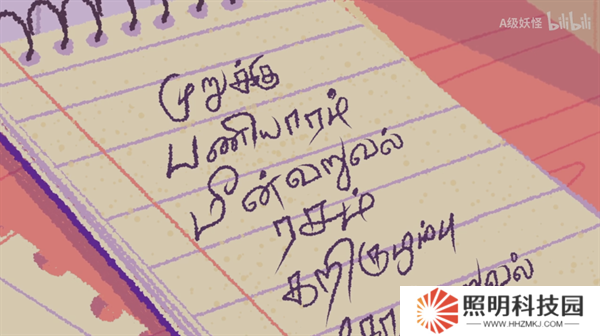 A级妖怪 bilibili
முறுக்கு
பணியாரம்
மீன்வறுவல்
ரசம்
கறிகுழம்பு
照明科技园
HTTP://WWW.HHZMKJ.COM